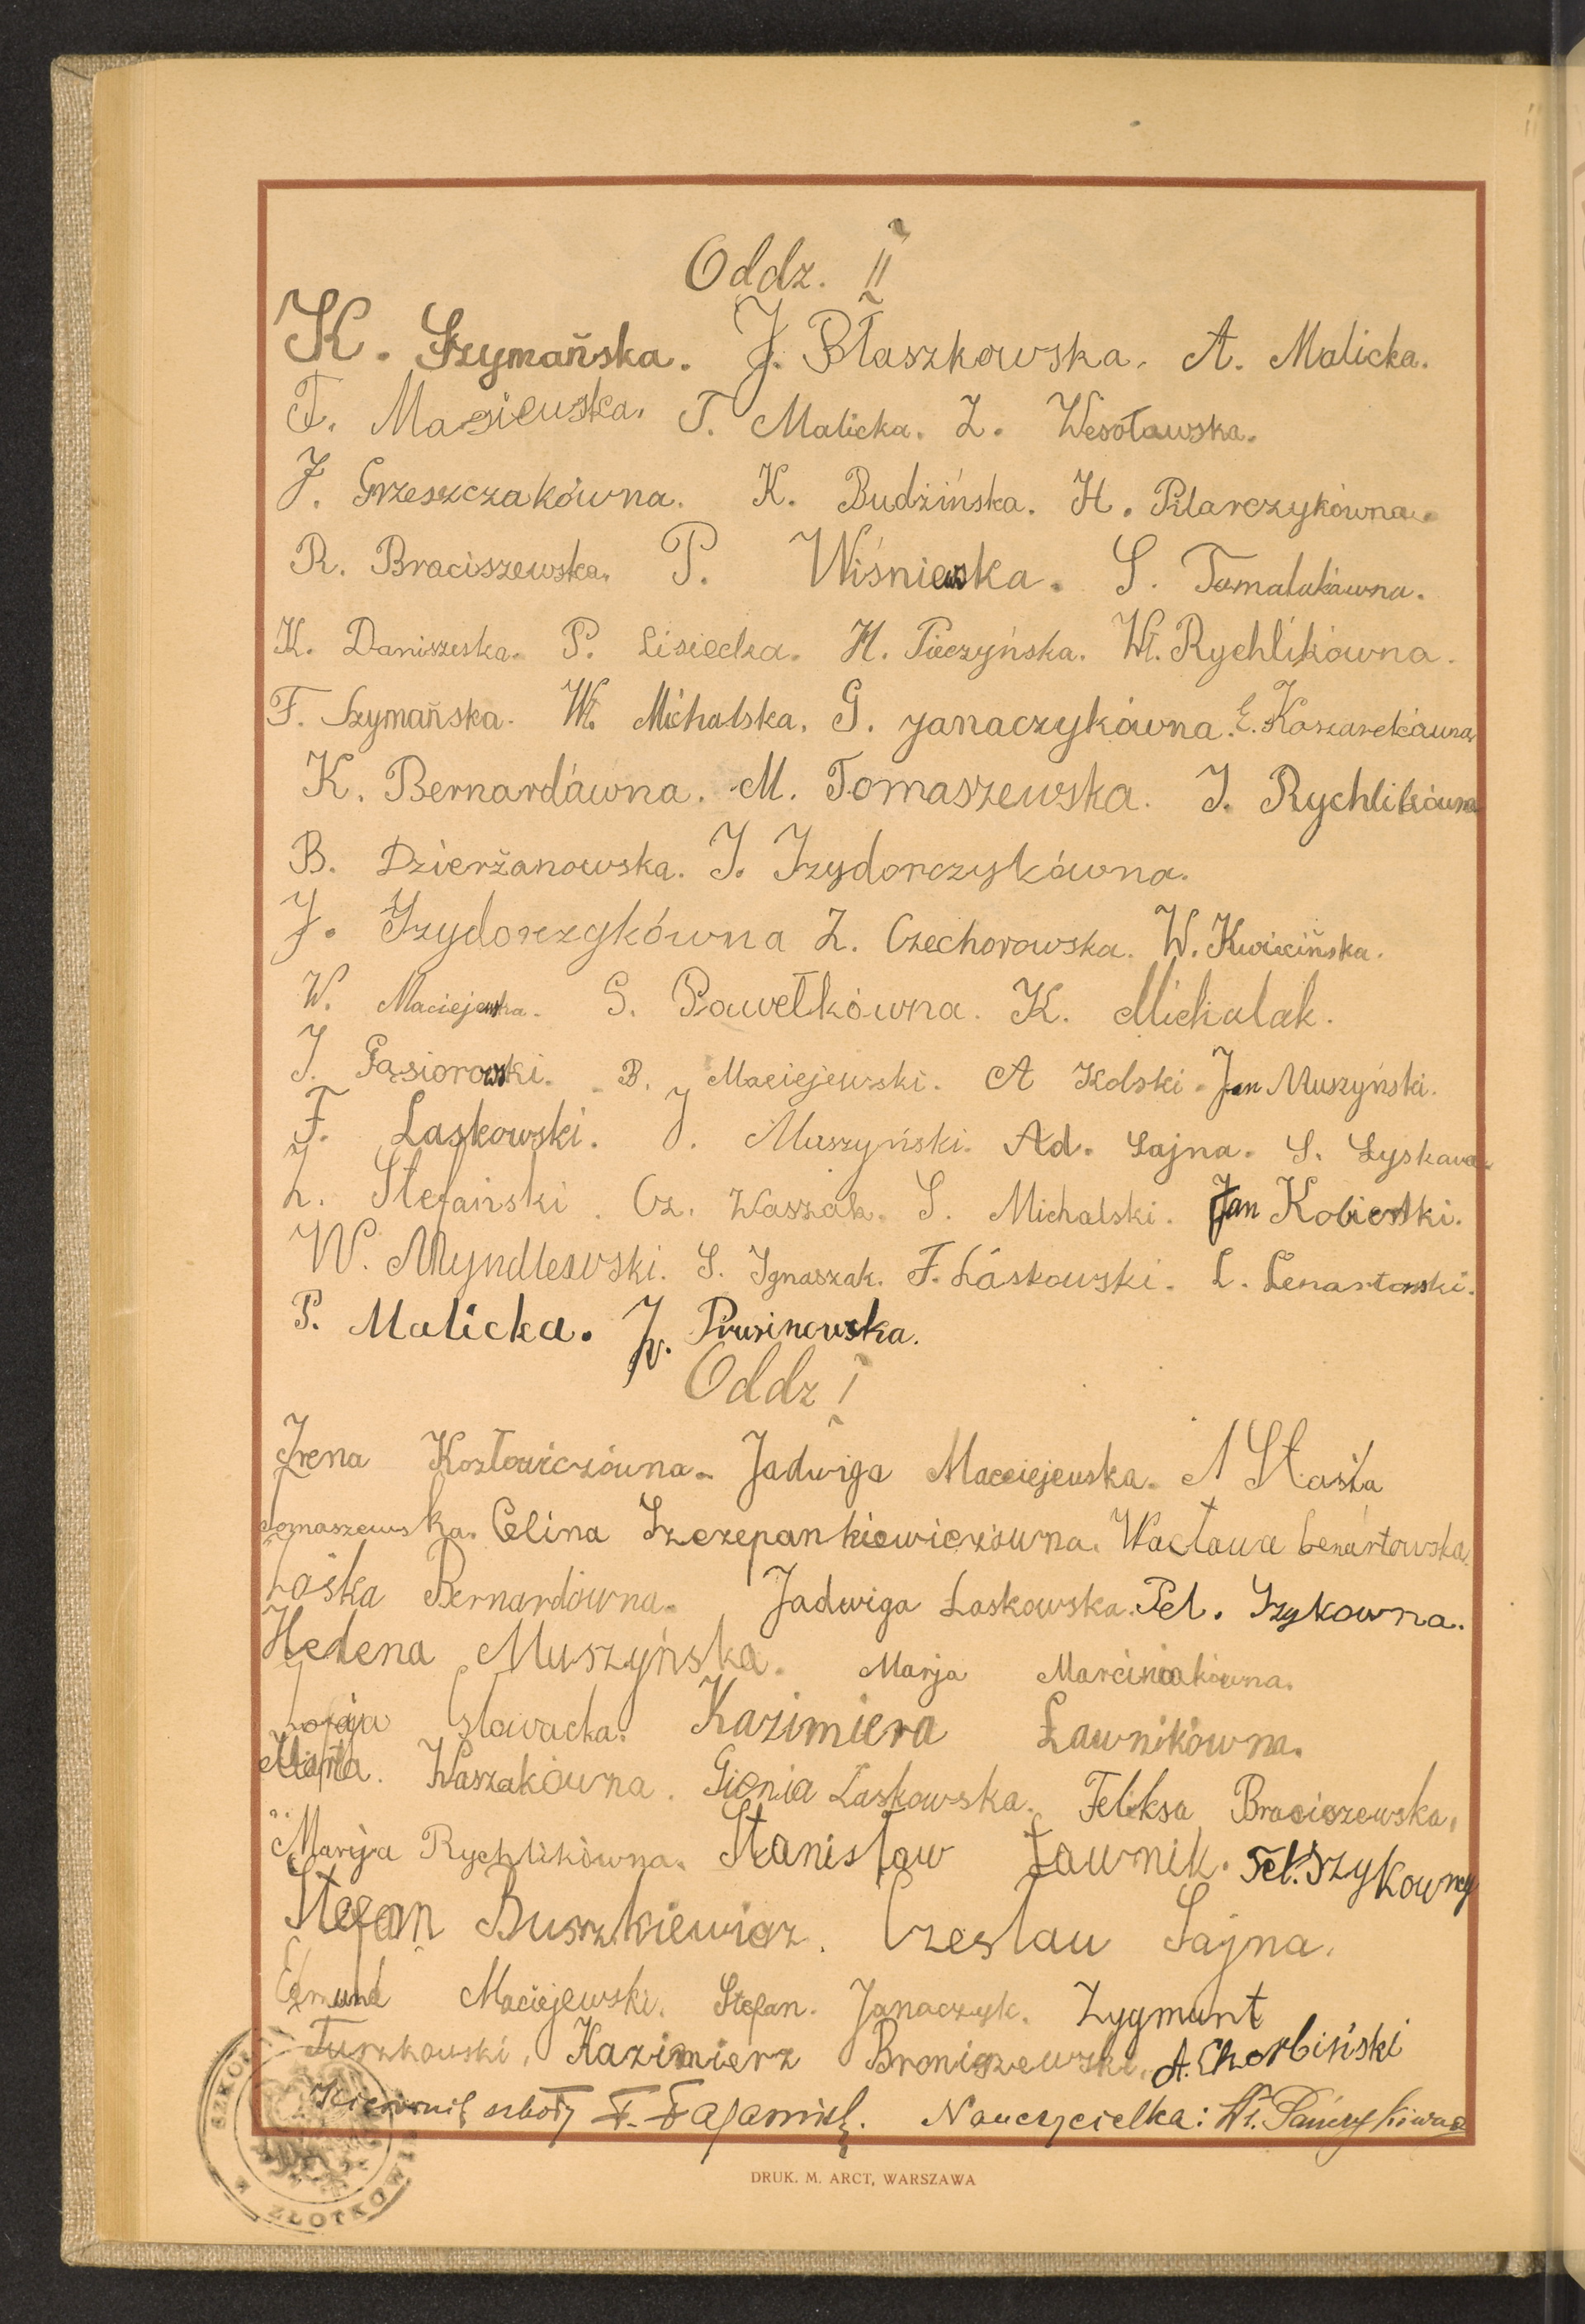 Oddz. II
K. Szymańska. J. Błaszkowska. A. Malicka.
F. Masiewska. T. Malicka. Z. Wesoławska.
J. Grzeszczakówna. K. Budzińska. H. Pilarczykówna.
R. Braciszewska. P. Wiśniewska. S. Tamalakówna.
K. Daniszeska. P. Lisiecka. H. Pieczyńska. Wł. Rychlikówna.
F. Szymańska. Wł. Michalska. G. Janaczykówna. E. Koszarekówna
K. Bernardówna. M. Tomaszewska. J. Rychlikówna
B. Dzierżanowska. J. Izydorczykówna.
J. Izydorczykówna Z. Czechorowska. W. Kwiecińska.
W. Maciejewska. G. Pawełkówna. K. Michalak.
J. Gąsiorowski. B. Maciejewski. A Kolski. Jan Muszyński.
F. Laskowski. J. Muszyński. Ad. Łajna. S. Łyskawa
Z. Stefański. Cz. Waszak. S. Michalski. Jan Kobierski.
W. Myndlewski. S. Ignaszak. F. Láskowski. L. Lenartowski.
P. Malicka. J. Prusinowska.
Oddz I
Irena Kozłowiczówna. Jadwiga Macciejewska. Stasia
Tomaszewska. Celina Szczepankiewiczówna. Wacława Lenartowska
Zośka Bernardówna. Jadwiga Laskowska. Pel. Szykowna.
Helena Muszyńska. Marja Marciniakówna.
Zofja Slavacka. Kazimiera Ławnikówna.
Marta. Waszakówna. Gienia Laskowska. Feliksa Braciszewska.
Marja Rychlikówna. Stanisław Ławnik. Fel. Szykowny
Stefan Buszkiewicz. Czeslau Łajna.
Edmund Maciejewski. Stefan. Janaczyk. Zygmunt
Turzkowski, Kazimierz Broniszewski. A. Chorbiński
Kierownik szkoły F. Fagasiński. Nauczycielka: Wł. Pańczykówna
SZKOŁ W ZŁOTKOWI
DRUK. M. ARCT, WARSZAWA